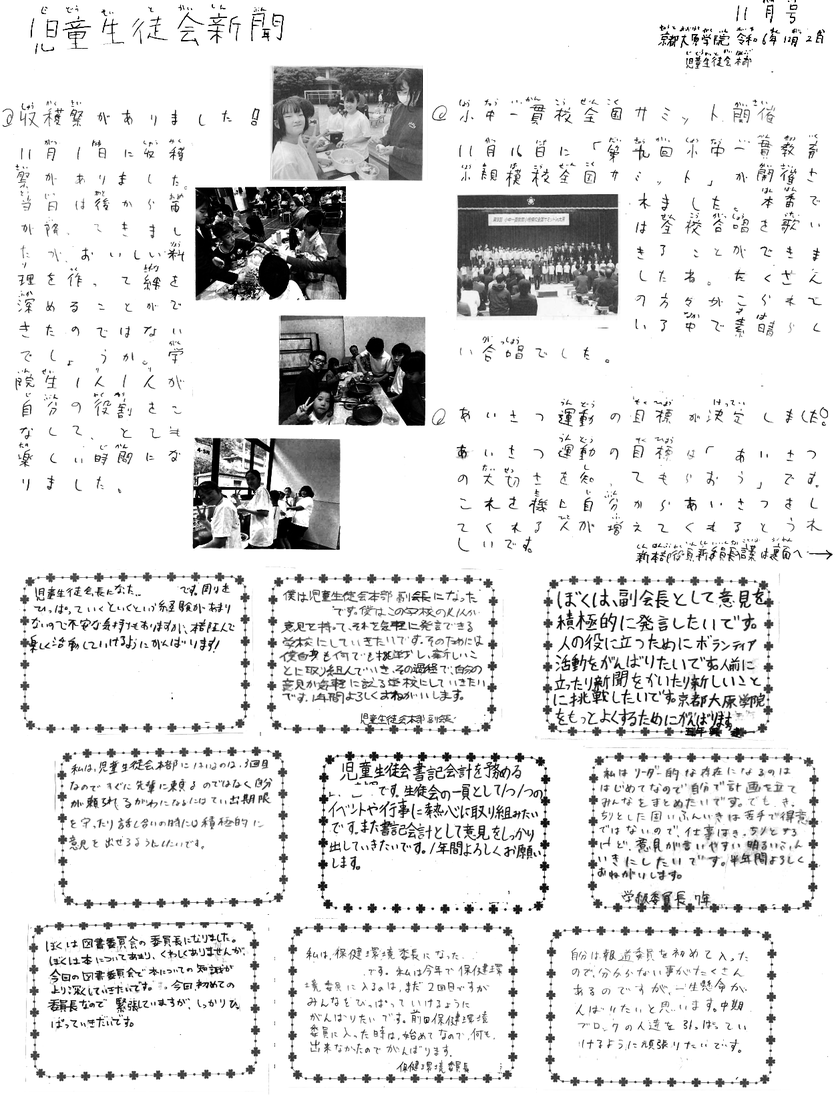 児童生徒会新聞
11月号
京都大原学院 令和6年12月2日
児童生徒会本部
収穫祭がありました!
11月1日に収穫
祭がありました。
当日は後から雨
が降ってきまし
たが、おいしい料
理を作って絆を
深めることがで
きたのではない
でしょうか。学
院生1人1人が
自分の役割をこ
なして、とても
楽しい時間にな
りました。
小中一貫校全国サミット開催
11月16日に「第九回小中一貫教育
小規模校全国サミット」が開催さ
れました。本番で
は全校合唱を歌い
きることができま
したね。たくさん
の方々がこられて
いる中で素晴らし
い合唱でした。
あいさつ運動の目標が決定しました!
あいさつ運動の目標は「あいさつ
の大切さを知ってもらおう」です。
これを機に自分からあいさつをし
てくれる人が増えてくれるとうれ
しいです。
新本部役員・新委員長の話は裏面へ→
児童生徒会長になった です。周りを
ひっぱっていくといくという経験があまり
ないので不安な気持ちもありますが、積極的に
楽しく活動していけるようにがんばります!
僕は児童生徒会本部副会長になった
です。僕はこの学校の1人1人が
意見を持って、それを気軽に発言できる
学校にしていきたいです。そのためには
僕自身も何でも挑戦し、新しいこ
とに取り組んでいき、その過程で、自分の
意見が気軽に言える学校にしていきたい
です。1年間よろしくおねがいします。
児童生徒会本部 副会長
ぼくは、副会長として意見を
積極的に発言したいです。
人の役に立つためにボランティア
活動をがんばりたいです。人前に
立ったり新聞をかいたり新しいこと
に挑戦したいです。京都大原学院
をもっとよくするためにがんばります
私は、児童生徒会本部にはいるのは、3回目
なのですぐに先輩に頼るのではなく自分
が頼られるがわになるにはてい出期限
を守ったり話し合いの時には積極的に
意見を出せるようにしたいです。
児童生徒会書記会計を務める
です。生徒会の一員として1つ1つの
イベントや行事に熱心に取り組みたい
です。また書記会計として意見をしっかり
出していきたいです。1年間よろしくお願い
します。
私はリーダー的な存在になるのは
はじめてなので自分で計画を立て
みんなをまとめたいです。でも、き
っちりとした固いふんいきは苦手で得意
ではないので、仕事はきっちりとする
けど、意見が言いやすい明るいふん
いきにしたいです。半年間よろしく
おねがいします。
学級委員長 7年
ぼくは図書委員会の委員長になりました。
ぼくは本についてあまり、くわしくありませんが、
今回の図書委員会で本についての知識が
より深くしていきたいです。今回、初めての
委員長なので 緊張していますが、しっかりひっ
ぱっていきたいです。
私は、保健環境委長になった
です。私は今年で保健環
境委員に入るのは、まだ2回目ですが
みんなをひっぱっていけるように
がんばりたいです。前回保健環境
委員に入った時は、始めてなので、何も
出来なかたのでがんばります。
保健環境委員長
自分は報道委員を初めて入った
ので、分からない事がたくさん
あるのですが、一生懸命が
んばりたいと思います。中期
ブロックの人達を引っぱってい
けるように頑張りたいです。